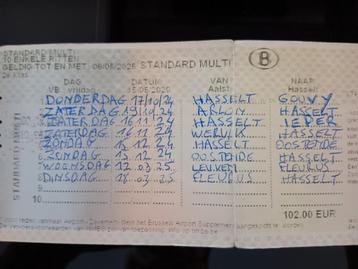 STANDARD MULTI
10 ENKELE RITTEN
GELDIG TOT EN MET 06/05/2025 STANDARD MULTI B
2e KLAS
DAG DATUM VAN NAAR
VB vrijdag 15/05/2020 Aalst Hasselt
DONDERDAG 17/10/24 HASSELT GOUVY
ZATERDAG 19/10/24 ARLON HASSELT
ZATERDAG 16/11/24 HASSELT IEPER
ZATERDAG 16 11 24 WERVIK HASSELT
ZONDAG 15 12 24 HASSELT OOSTENDE
6 ZONDAG 15 12 24 OOSTENDE HASSELT
WOENSDAG 12.03.25 LEUVEN FLEURUS
DINSDAG 18.03.25 FLEURUS HASSELT
9
10
102.00 EUR